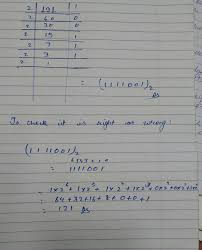 2 | 121 | 1
2 | 60 | 0
2 | 30 | 0
2 | 15 | 1
2 | 7 | 1
2 | 3 | 1
2 | 1
= (1111001)₂
To check it is right or wrong:
(1111001)₂
6543210
1111001
1x2⁶+1x2⁵+1x2⁴+1x2³+0x2²+0x2¹+1x2⁰
= 64+32+16+8+0+0+1
= 121